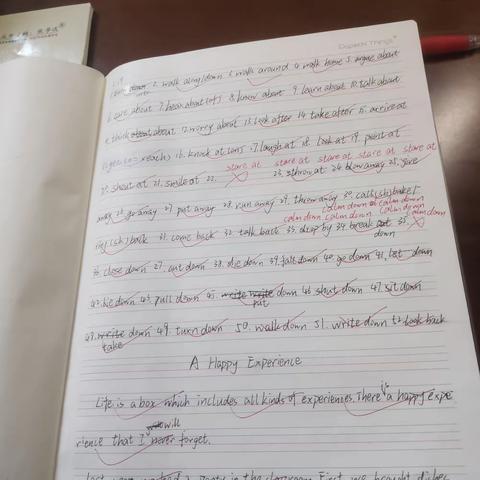 Dopesh Things
2. walk along/down 3. walk around 4. walk home 5. argue about
6. care about 7. hear about(of) 8. know about 9. learn about 10. talk about
think about 12. worry about 13. look after 14. take after 15. arrive at
reach) 16. knock at (on) 17. laugh at 18. look at 19. point at
stare at stare at stare at stare at stare at
20. shout at 21. smile at 22. 23. throw at 24. blow away 25. give
away 26. go away 27. put away 28. run away 29. throw away 30. call (sb) back/
calm down calm down
calm down calm down calm down calm down
ring (sb) back 31. come back 32. talk back 33. drop by 34. break down 35.
36. close down 37. cut down 38. die down 39. fall down 40. go down 41. let down
42. lie down 43. pull down 45. put down 46. shut down 47. sit down
48. take down 49. turn down 50. walk down 51. write down 52. look back
A Happy Experience
Life is a box which includes all kinds of experiences. There is a happy expe
rience that I will never forget.
party in the classroom. First, we brought dishes